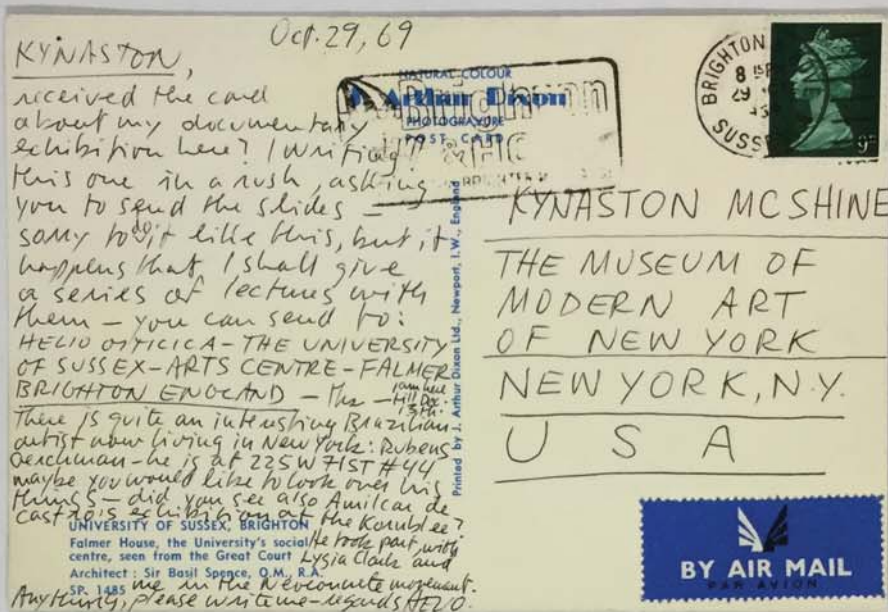 Oct. 29, 69
KYNASTON,
received the card
about my documentary
exhibition here? I writing
this one in a rush, asking
you to send the slides –
sorry to do it like this, but it
happens that I shall give
a series of lectures with
them – you can send to:
HELIO OITICICA – THE UNIVERSITY
OF SUSSEX – ARTS CENTRE – FALMER
BRIGHTON ENGLAND – Thx – I am here till Dec. 13th.
There is quite an interesting Brazilian
artist now living in New York: Rubens
Gerchman – he is at 225 W 71ST #44
maybe you would like to look over his
things – did you see also Amilcar de
Castro's exhibition at the Kornblee?
He took part, with
Lygia Clark and
me in the Neoconcrete movement.
Anything, please write me – regards HELIO.
UNIVERSITY OF SUSSEX, BRIGHTON
Falmer House, the University's social
centre, seen from the Great Court
Architect : Sir Basil Spence, O.M., R.A.
SP. 1485
NATURAL COLOUR
Arthur Dixon
PHOTOGRAVURE
POST CARD
Printed by J. Arthur Dixon Ltd., Newport, I.W., England
BRIGHTON
8 15P
29
SUSSEX
9D
KYNASTON MCSHINE
THE MUSEUM OF
MODERN ART
OF NEW YORK
NEW YORK, N.Y.
U S A
BY AIR MAIL
PAR AVION